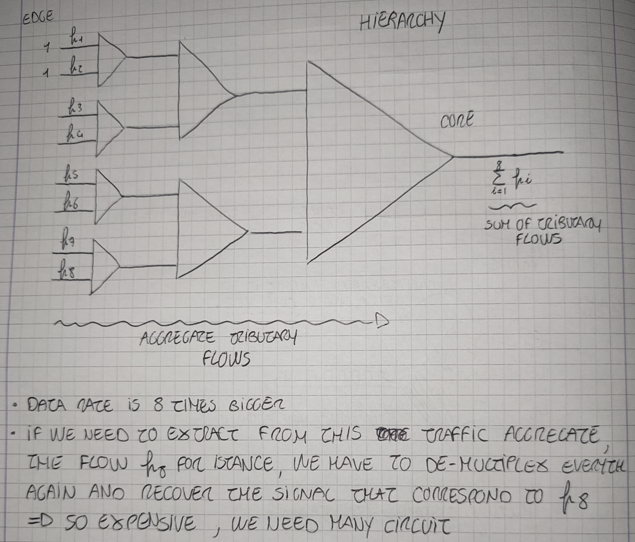 EDGE
HIERARCHY
1 h1
1 h2
h3
h4
h5
h6
h7
h8
CORE
8
∑ hi
i=1
SUM OF TRIBUTARY
FLOWS
AGGREGATE TRIBUTARY
FLOWS
• DATA RATE IS 8 TIMES BIGGER
• IF WE NEED TO EXTRACT FROM THIS TRAFFIC AGGREGATE,
THE FLOW h8 FOR ISTANCE, WE HAVE TO DE-MULTIPLEX EVERYTH
AGAIN AND RECOVER THE SIGNAL THAT CORRESPOND TO h8
=D SO EXPENSIVE, WE NEED MANY CIRCUIT